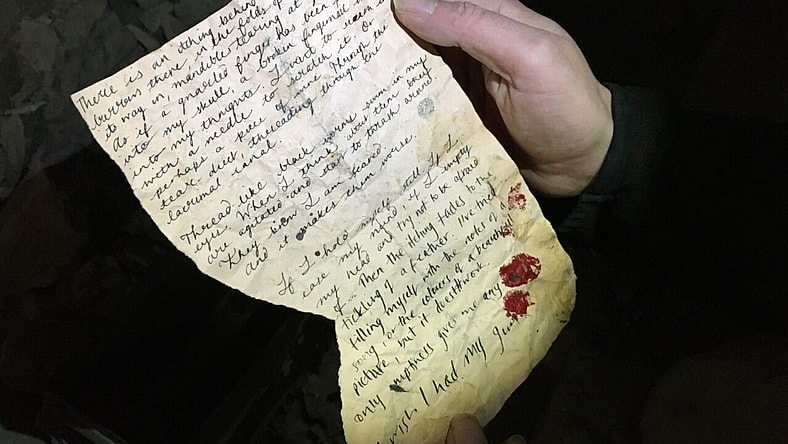 There is an itching behind
burrows there, in the folds of
its way in, mandibles tearing at
As if a gnarled finger has been
into my skull, a broken fingernail
into my thoughts. I want to
with a needle to scratch it. Or
perhaps a piece of wire through the
tear duct threading through the
lacrimal canal.
Thread-like black worms swim in my
eyes. When I think about them they
are agitated and start to thrash around
They know I am scared.
and it makes them worse.
If I hold myself still. If I
ease my mind, if I empty
my head and try not to be afraid
Then the itching fades to the
tickling of a feather. I've tried
filling myself with the notes of a
song, or the colours of a beautiful
picture, but it doesn't work.
only emptiness gives me any
wish I had my gun